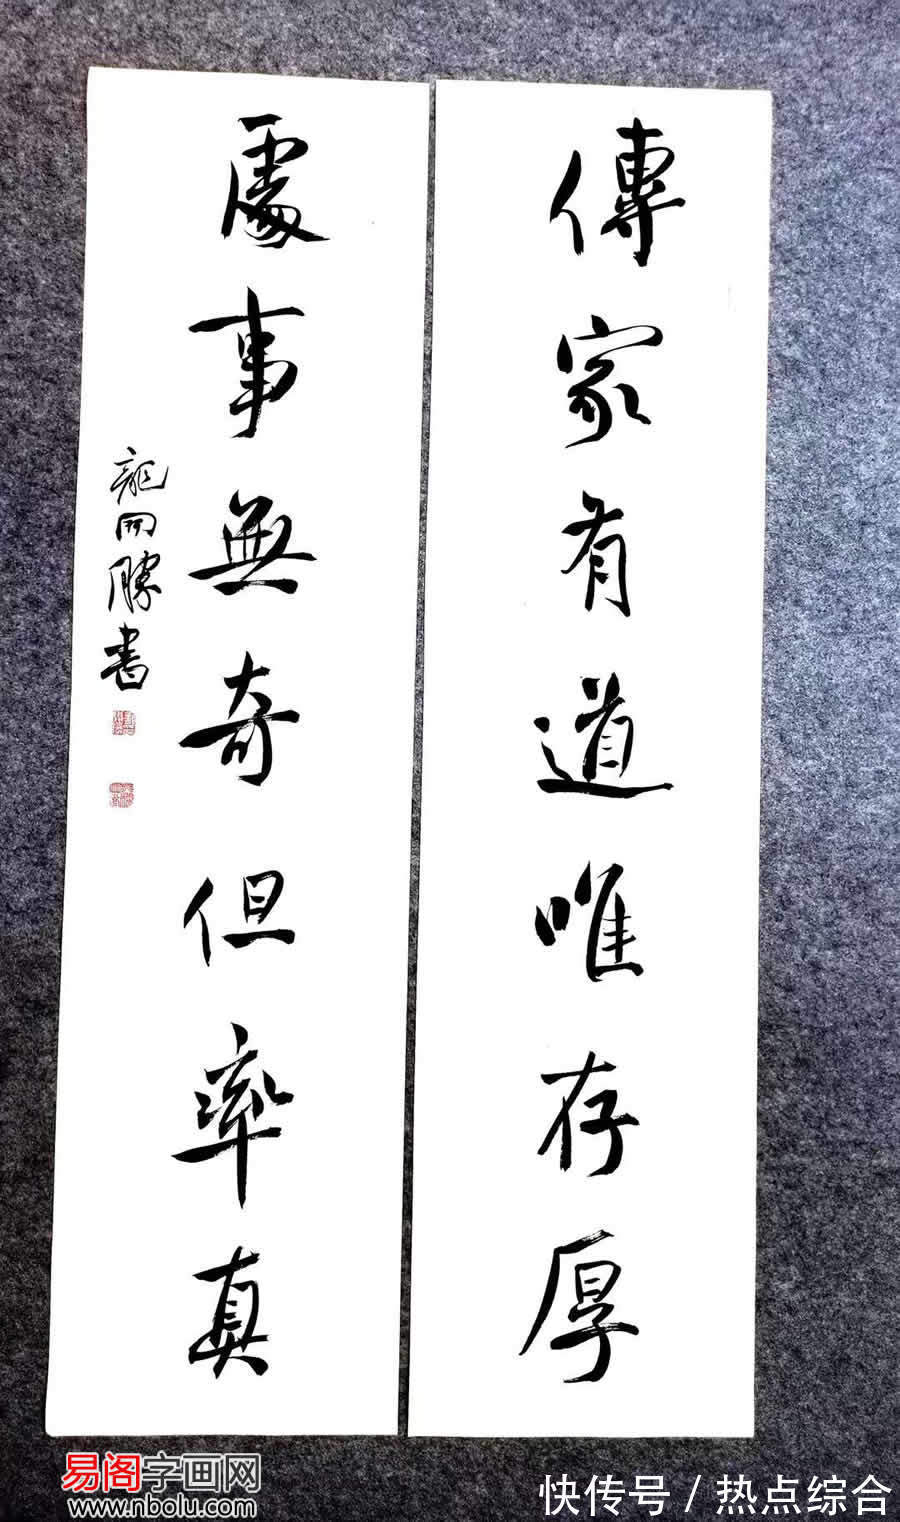 傳家有道唯存厚
處事無奇但率真
龍開勝書
易阁字画网
www.nbolu.com
快传号/热点综合